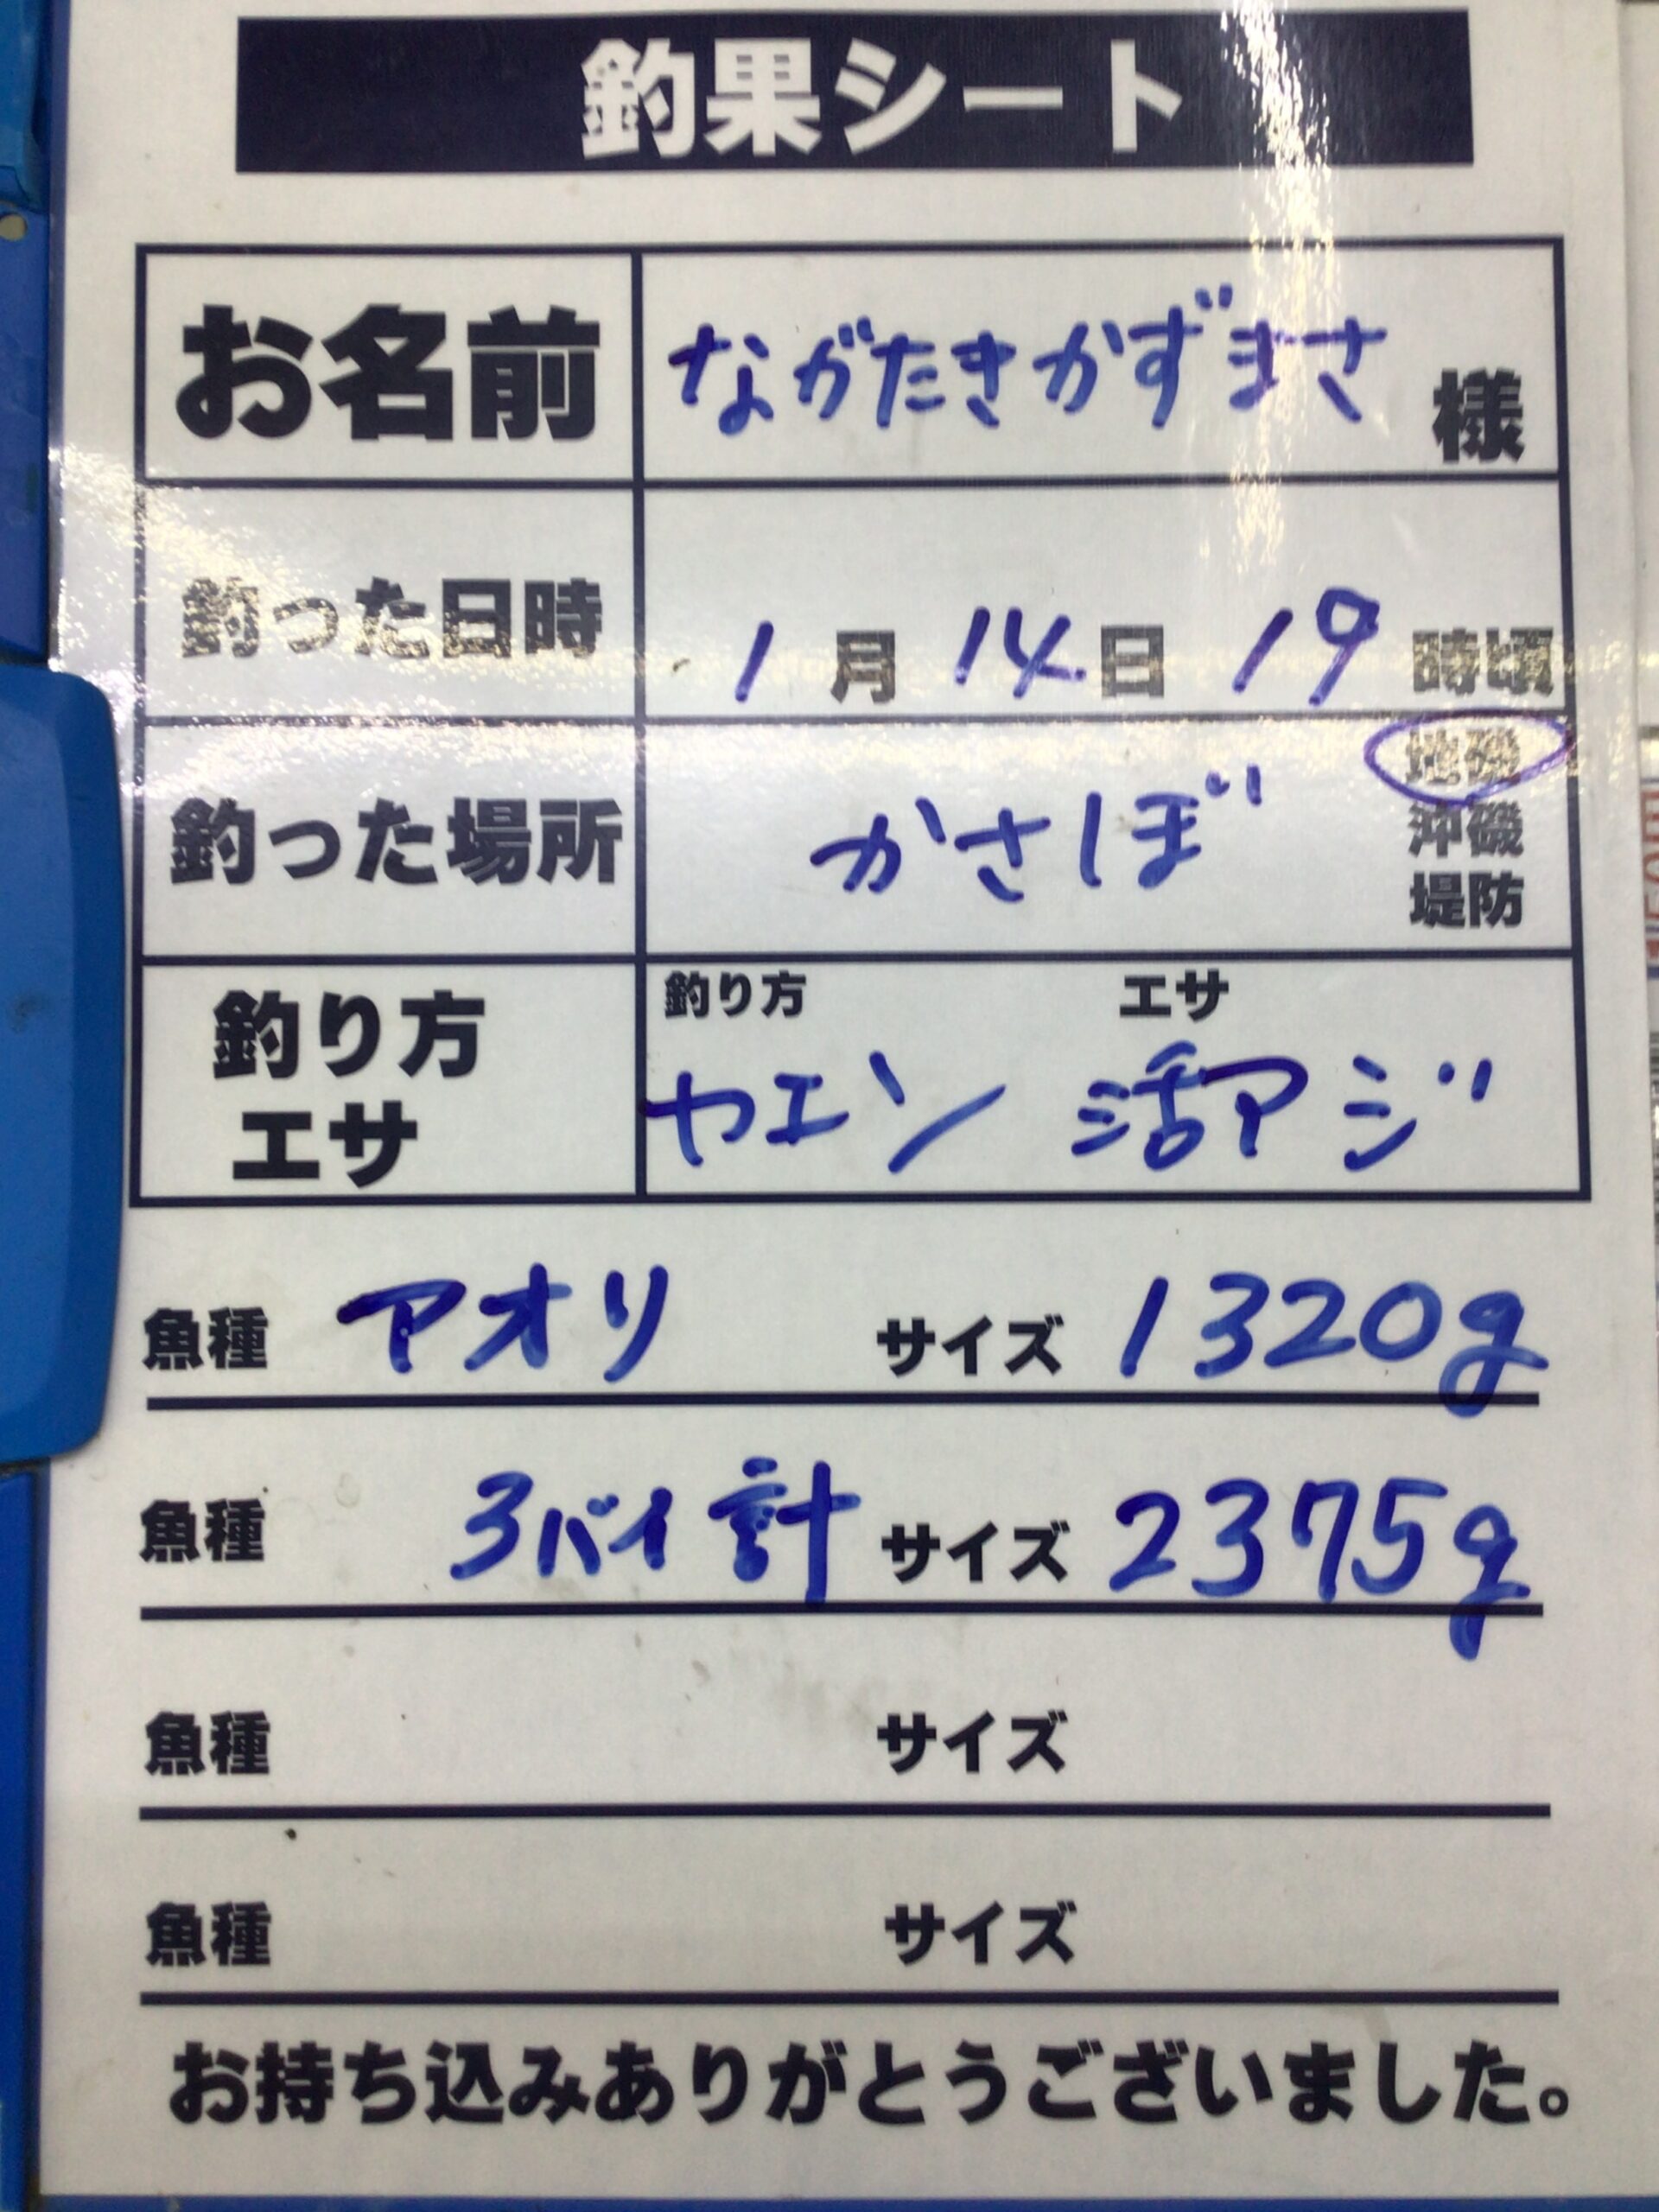 釣果シート
お名前 ながたきかずまさ 様
釣った日時 1月14日19時頃
釣った場所 かさしぼ 地磯
沖磯
堤防
釣り方 エサ
釣り方 エサ
ヤエン 活アジ
魚種 アオリ サイズ 1320g
魚種 3バイ計 サイズ 2375g
魚種 サイズ
魚種 サイズ
お持ち込みありがとうございました。